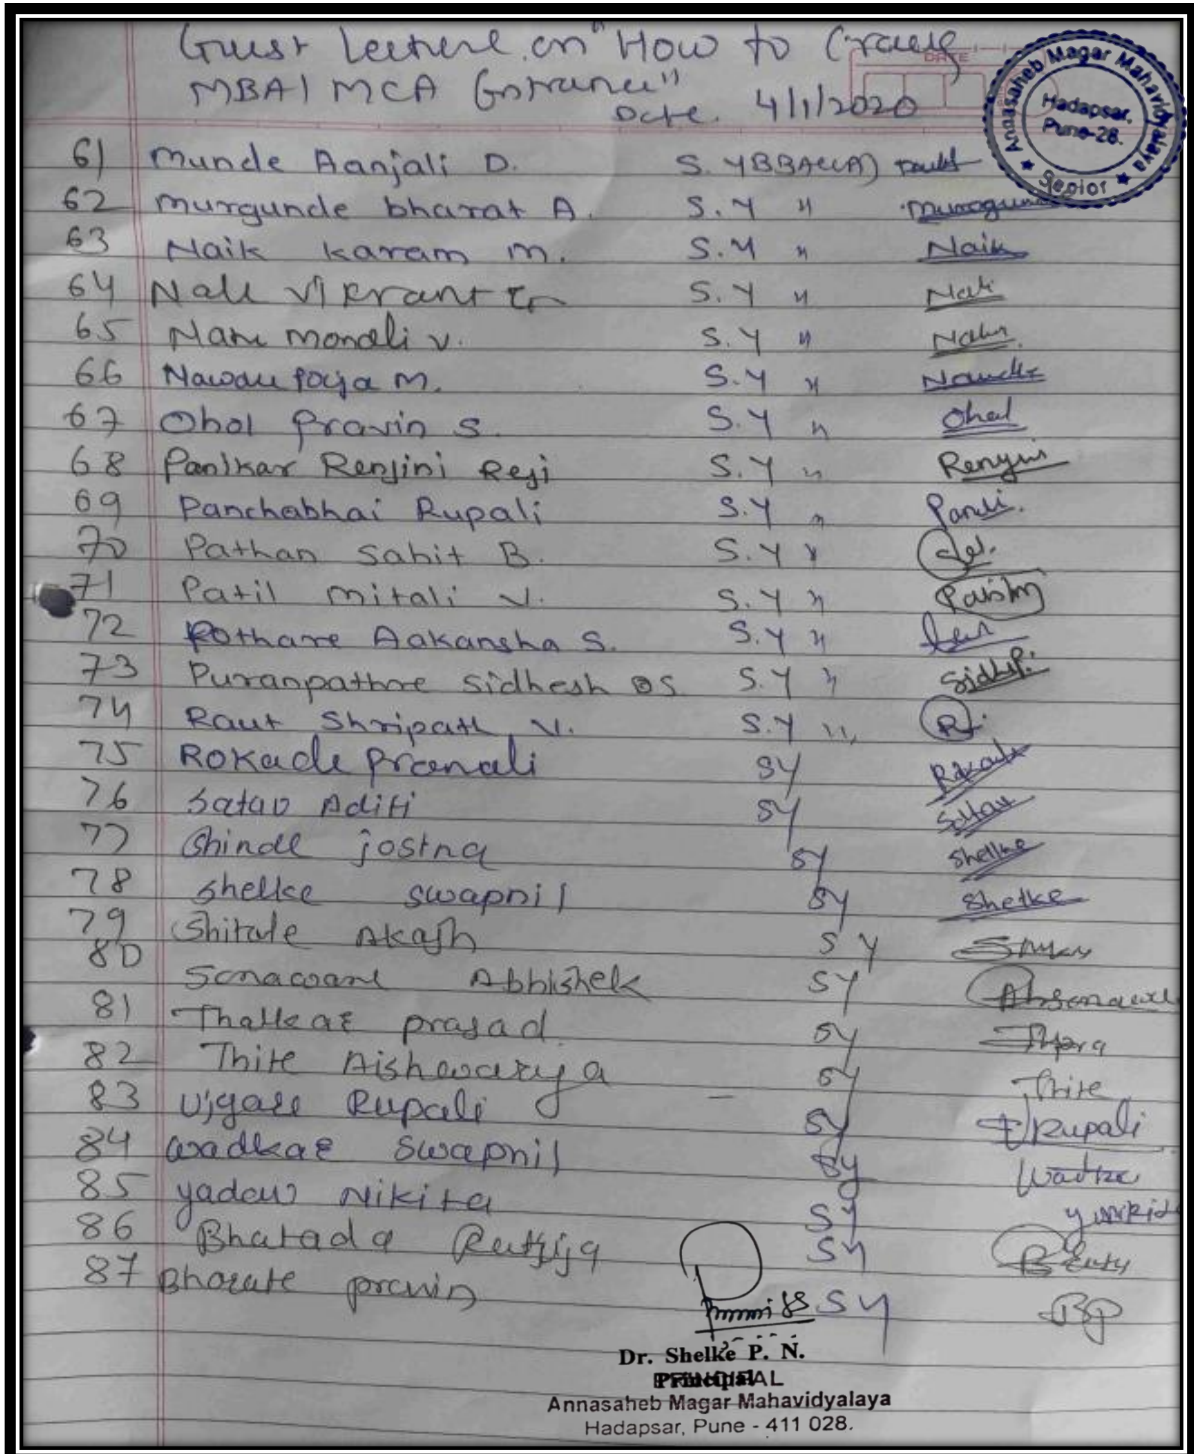 Guest Lecture on "How to Crack
MBA/MCA Entrance"
Date. 4/1/2020
Annasaheb Magar Mahavidyalaya
Hadapsar,
Pune-28.
Senior
61 Munde Aanjali D. S.YBBA(CA)
62 Murgunde bharat A. S.Y "
63 Naik karam M. S.Y " Naik
64 Nale Vikrant S.Y " Nale
65 V. S.Y "
66 M. S.Y "
67 Ohol Pravin S. S.Y " Ohol
68 Panikar Renjini Reji S.Y " Renjini
69 Panchabhai Rupali S.Y "
70 Pathan Sahit B. S.Y "
71 Patil Mitali V. S.Y "
72 Pothare Aakansha S. S.Y "
73 Puranpathre Sidhesh S. S.Y "
74 Raut Shripath V. S.Y "
75 Rokade Pranali SY Rokade
76 Satav Aditi SY Satav
77 Shinde jostna SY Shelke
78 Shelke Swapnil SY Shelke
79 Shitole Akash SY
80 Sonawane Abhishek SY Absonawane
81 Thalkar prasad SY
82 Thite Aishwarya SY Thite
83 Ujgare Rupali SY Rupali
84 Wadkar Swapnil SY
85 Yadav Nikita SY
86 Bharada Rutuja SY
87 Bharate pravin SY BP
Dr. Shelke P. N.
Principal
PRINCIPAL
Annasaheb Magar Mahavidyalaya
Hadapsar, Pune - 411 028.